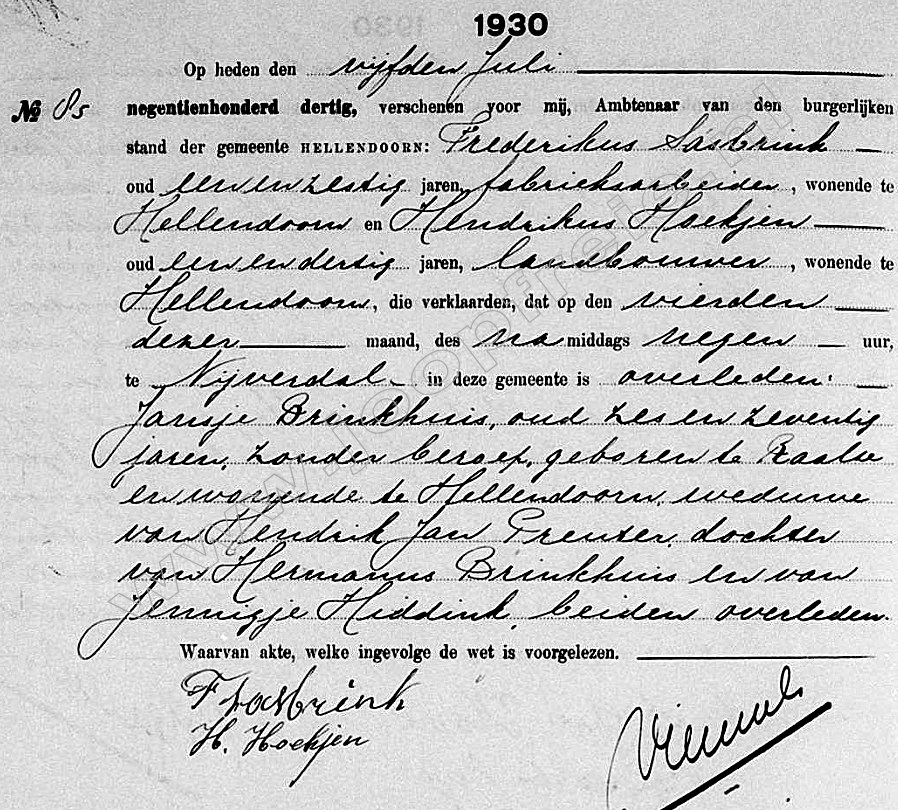 1930
Op heden den vijfden Juli
№ 85 negentienhonderd dertig, verschenen voor mij, Ambtenaar van den burgerlijken
stand der gemeente HELLENDOORN: Frederikus Sasbrink
oud een en zestig jaren, fabrieksarbeider, wonende te
Hellendoorn en Hendrikus Hoekjen
oud een en dertig jaren, landbouwer, wonende te
Hellendoorn, die verklaarden, dat op den vierden
dezer maand, des na middags negen uur,
te Nijverdal in deze gemeente is overleden:
Jansje Brinkhuis, oud zes en zeventig
jaren, zonder beroep, geboren te Raalte
en wonende te Hellendoorn, weduwe
van Hendrik Jan Preuter, dochter
van Hermannus Brinkhuis en van
Jennigje Hiddink, beiden overleden.
Waarvan akte, welke ingevolge de wet is voorgelezen.
F Sasbrink
H. Hoekjen